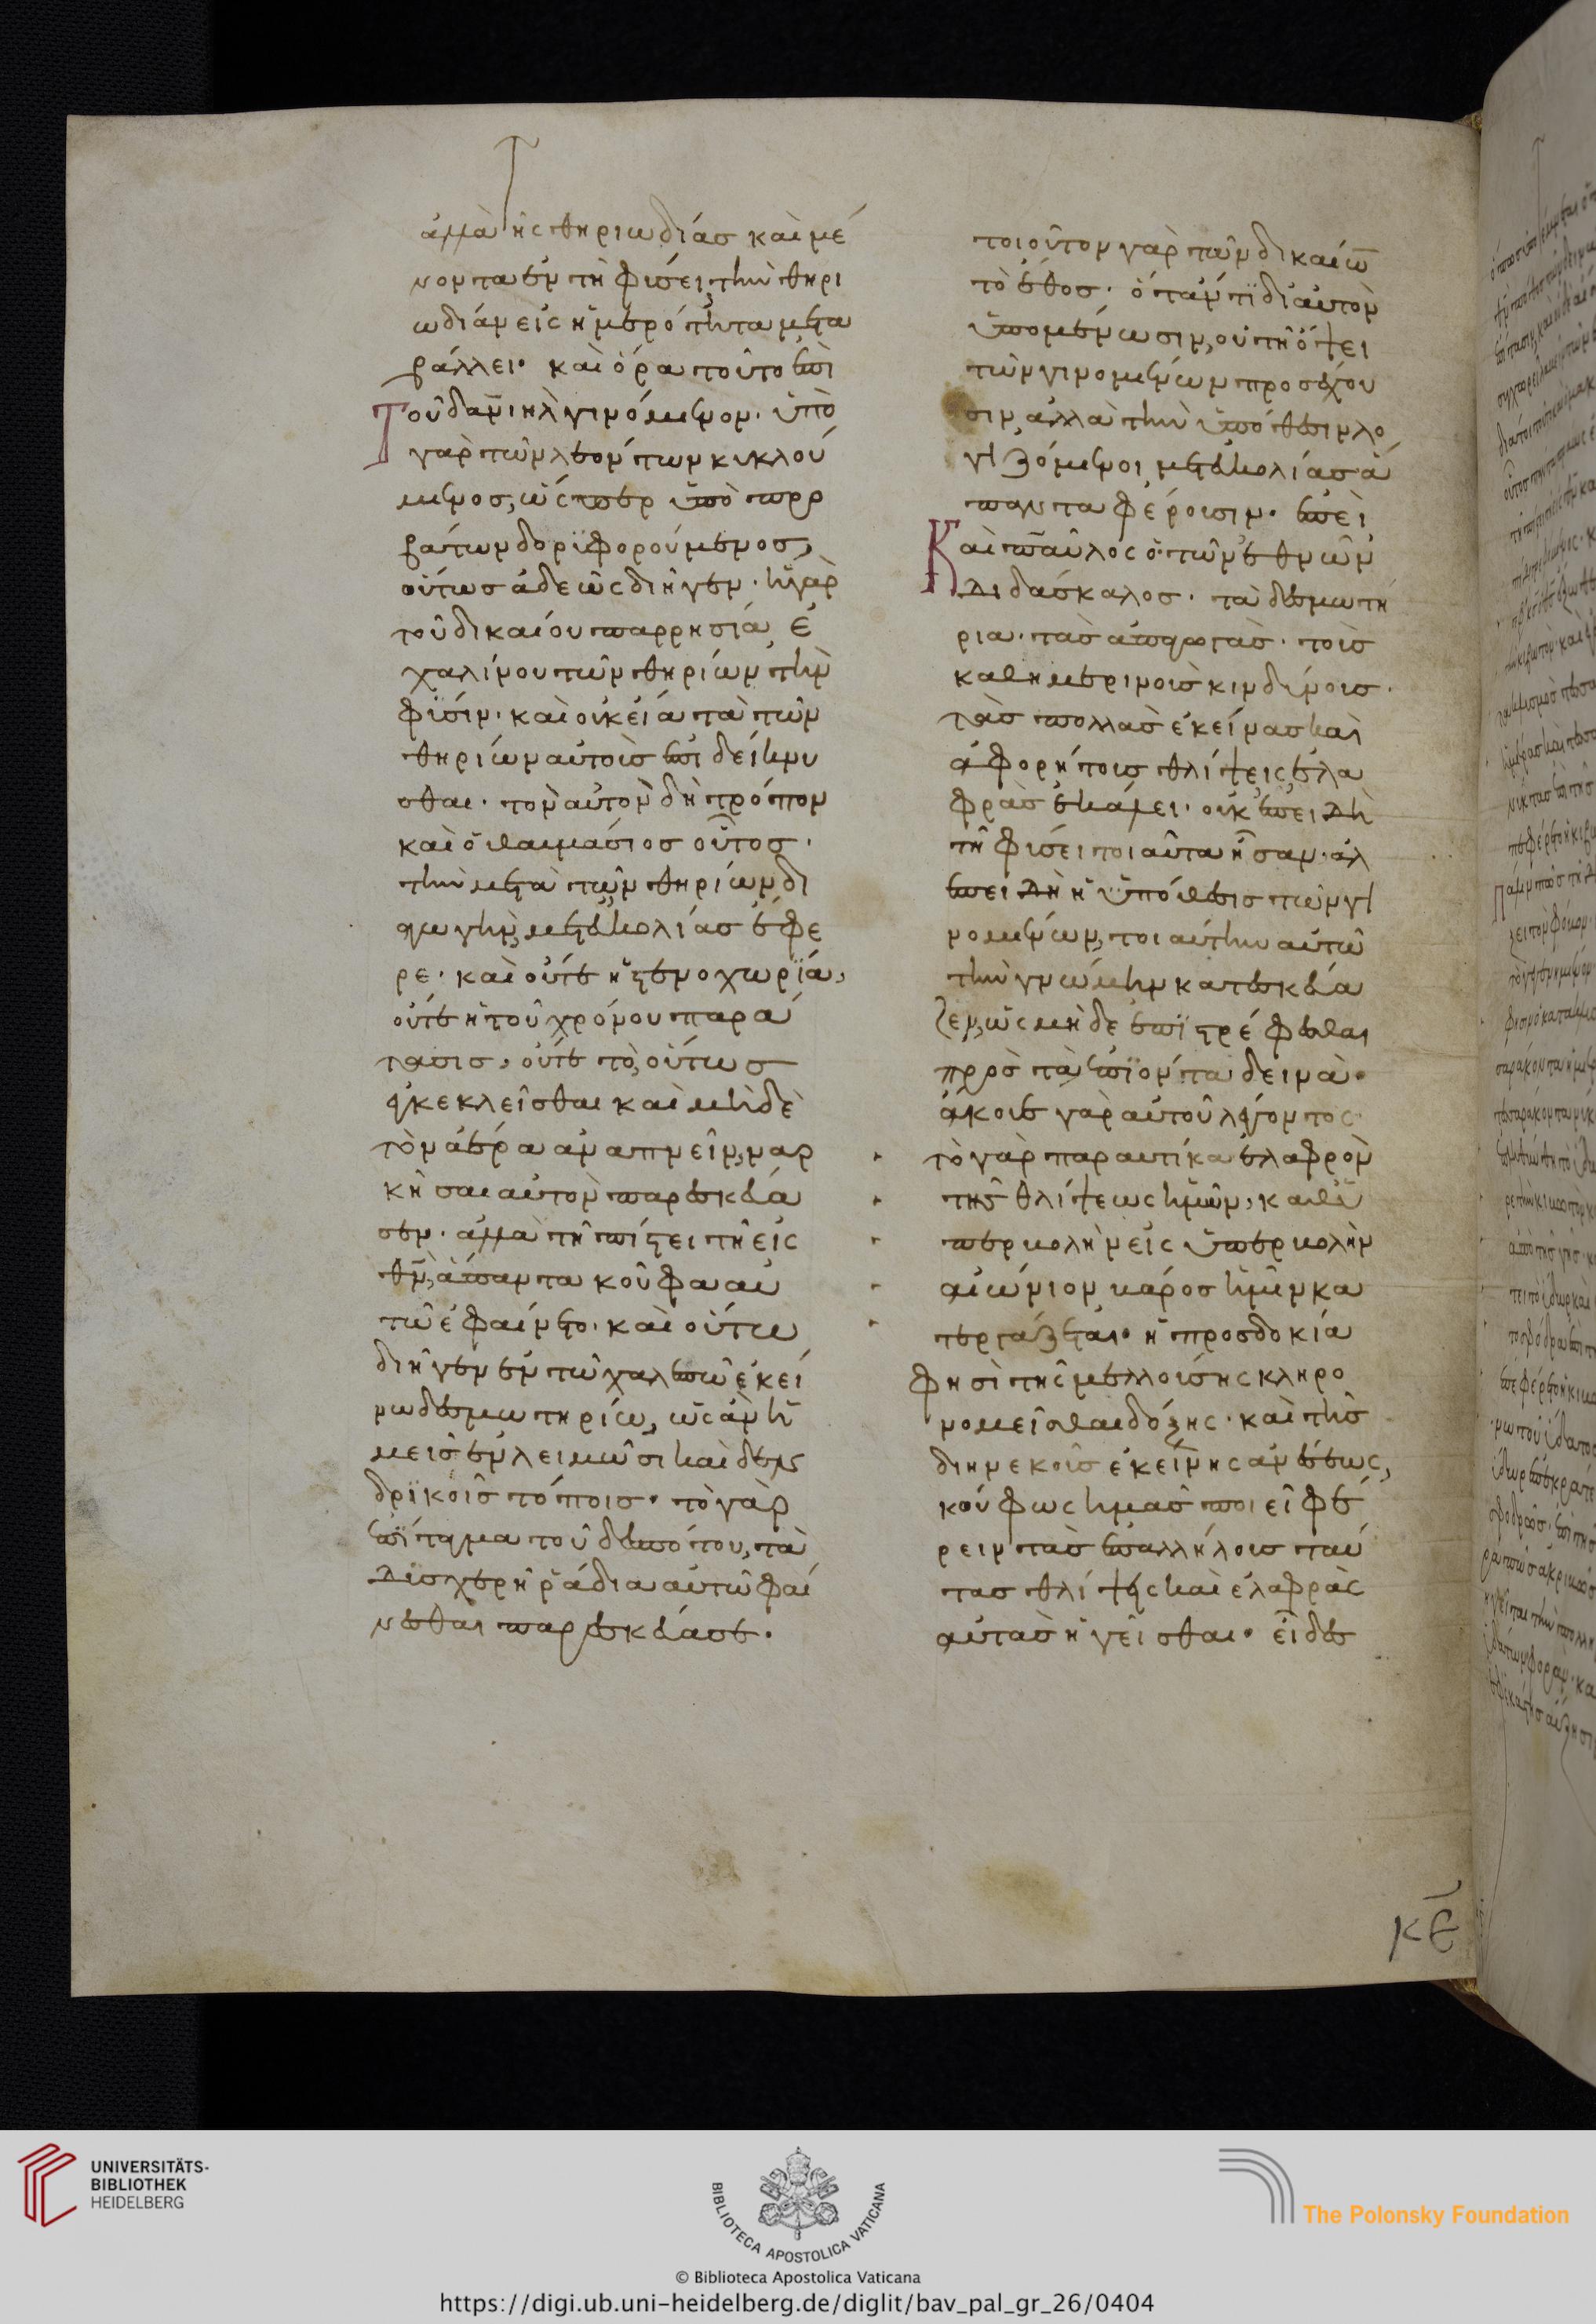 ἀλλὰ τῆς θηριωδίασ καὶ μέ
νοντα ἐν τῆ φύσει, τὴν θηρι
ωδίαν εἰς ἡμερότητα μετα
βάλλει· καὶ ὅρα τοῦτο ἐπὶ
τοῦ δανιὴλ γινόμενον· ὑπὸ
γὰρ τῶν λεόντων κυκλού
μενος, ὥσπερ ὑπὸ προ
βάτων δορυφορούμενοσ,
οὕτωσ ἀδεῶς διῆγεν· ἡ γὰρ
τοῦ δικαίου παρρησία ἐ
χαλίνου τῶν θηρίων τὴν
φύσιν· καὶ οὐκ εἴα τὰ τῶν
θηρίων αὐτοῖσ ἐπιδείκνυ
σθαι· τὸν αὐτὸν δὴ τρόπον
καὶ ὁ θαυμάσιοσ οὗτοσ·
τὴν μετὰ τῶν θηρίων δι
αγωγὴν, μετευκολίασ ἔφε
ρε· καὶ οὔτε ἡ στενοχωρία,
οὔτε ἡ τοῦ χρόνου παρά
τασισ, οὔτε τὸ, οὕτωσ
ἐγκεκλεῖσθαι καὶ μὴδὲ
τὸν ἀέρα ἀναπνεῖν, ναρ
κῆσαι αὐτὸν παρεσκεύα
σεν· ἀλλὰ τῆ πίστει τῆ εἰς
θν̄, ἅπαντα κοῦφα αὐ
τῶ ἐφαίνετο· καὶ οὕτω
διῆγεν ἐν τῶ χαλεπῶ ἐκεί
νω δεσμωτηρίω, ὡς ἂν ἡ
μεῖσ ἐν λειμῶσι καὶ δεν
δρικοῖσ τόποισ· τὸ γὰρ
ἐπίταγμα τοῦ δεσπότου, τὰ
δυσχερῆ ῥάδια αὐτῶ φαί
νεσθαι παρεσκεύασε·
τοιοῦτον γὰρ τῶν δικαίω̄
τὸ ἔθοσ· ὅταν τὶ δι αὐτὸν
ὑπομένωσιν, οὐ τῆ ὄψει
τῶν γινομένων προσέχου
σιν, ἀλλὰ τὴν ὑπόθεσιν λο
γιζόμενοι, μετευκολίασ ἅ
παντα φέρουσιν· ἐπεὶ
καὶ παῦλος ὁ τῶν ἐθνῶν
διδάσκαλοσ· τὰ δεσμωτή
ρια· τὰσ ἀπαγωγὰσ· τοὺσ
καθημερινοὺσ κινδύνουσ·
τὰσ πολλὰσ ἐκείνασ καὶ
ἀφορήτουσ θλίψεις, ἐλα
φρὰσ ἐκάλει· οὐκ ἐπειδὴ
τῆ φύσει τοιαῦτα ἦσαν· ἀλ
ἐπειδὴ ἡ ὑπόθεσισ τῶν γι
νομένων, τοιαύτην αὐτῶ
τὴν γνώμην κατεσκεύα
ζεν, ὡς μὴδὲ ἐπιστρέφεσθαι
πρὸσ τὰ ἐπιόντα δεινὰ·
ἄκουε γὰρ αὐτοῦ λέγοντος·
τὸ γὰρ παραυτίκα ἐλαφρὸν
τῆσ θλίψεως ἡμῶν, καθ' ὑ
περβολὴν εἰς ὑπερβολὴν
αἰώνιον βάροσ ἡμῖν κα
τεργάζεται· ἡ προσδοκία
φησὶ τῆς μελλούσης κληρο
νομεῖσθαι δόξης· καὶ τῆσ
διηνεκοῦσ ἐκείνης ἀνέσεως,
κούφως ἡμᾶσ ποιεῖ φέ
ρειν τὰσ ἐπαλλήλουσ ταύ
τασ θλίψεις καὶ ἐλαφρὰς
αὐτὰσ ἡγεῖσθαι· εἶδες
κε̄
UNIVERSITÄTS-
BIBLIOTHEK
HEIDELBERG
BIBLIOTECA APOSTOLICA VATICANA
© Biblioteca Apostolica Vaticana
The Polonsky Foundation
https://digi.ub.uni-heidelberg.de/diglit/bav_pal_gr_26/0404